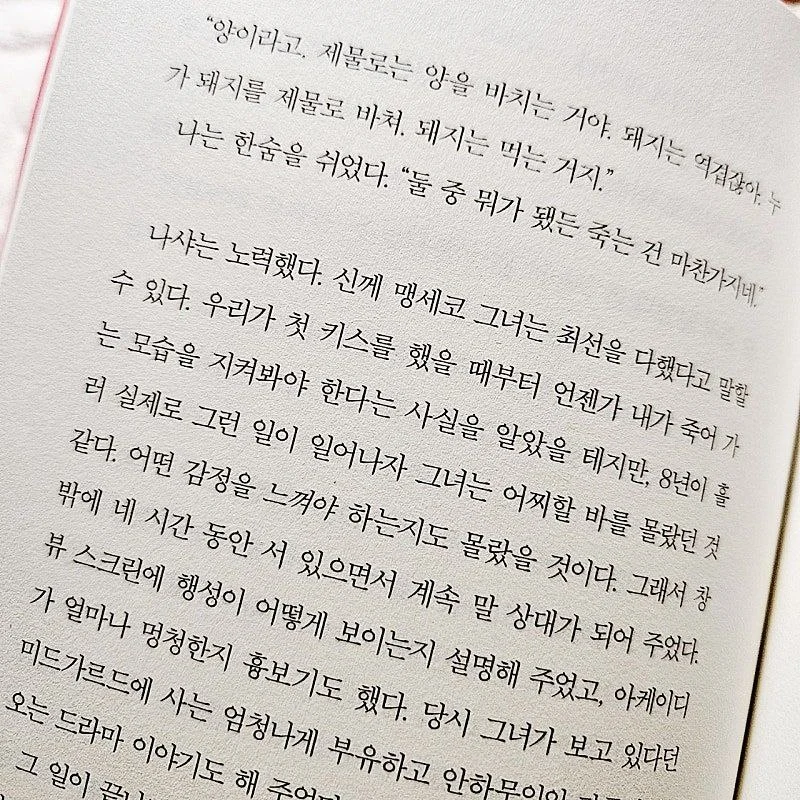 “양이라고. 제물로는 양을 바치는 거야. 돼지는 역겹잖아. 누
가 돼지를 제물로 바쳐. 돼지는 먹는 거지.”
나는 한숨을 쉬었다. “둘 중 뭐가 됐든 죽는 건 마찬가지네.”
나샤는 노력했다. 신께 맹세코 그녀는 최선을 다했다고 말할
수 있다. 우리가 첫 키스를 했을 때부터 언젠가 내가 죽어 가
는 모습을 지켜봐야 한다는 사실을 알았을 테지만, 8년이 흘
러 실제로 그런 일이 일어나자 그녀는 어찌할 바를 몰랐던 것
같다. 어떤 감정을 느껴야 하는지도 몰랐을 것이다. 그래서 창
밖에 네 시간 동안 서 있으면서 계속 말 상대가 되어 주었다.
뷰 스크린에 행성이 어떻게 보이는지 설명해 주었고, 아케이디
가 얼마나 멍청한지 흉보기도 했다. 당시 그녀가 보고 있다던
미드가르드에 사는 엄청나게 부유하고
오는 드라마 이야기도 해 주었다
그 일이 끝나